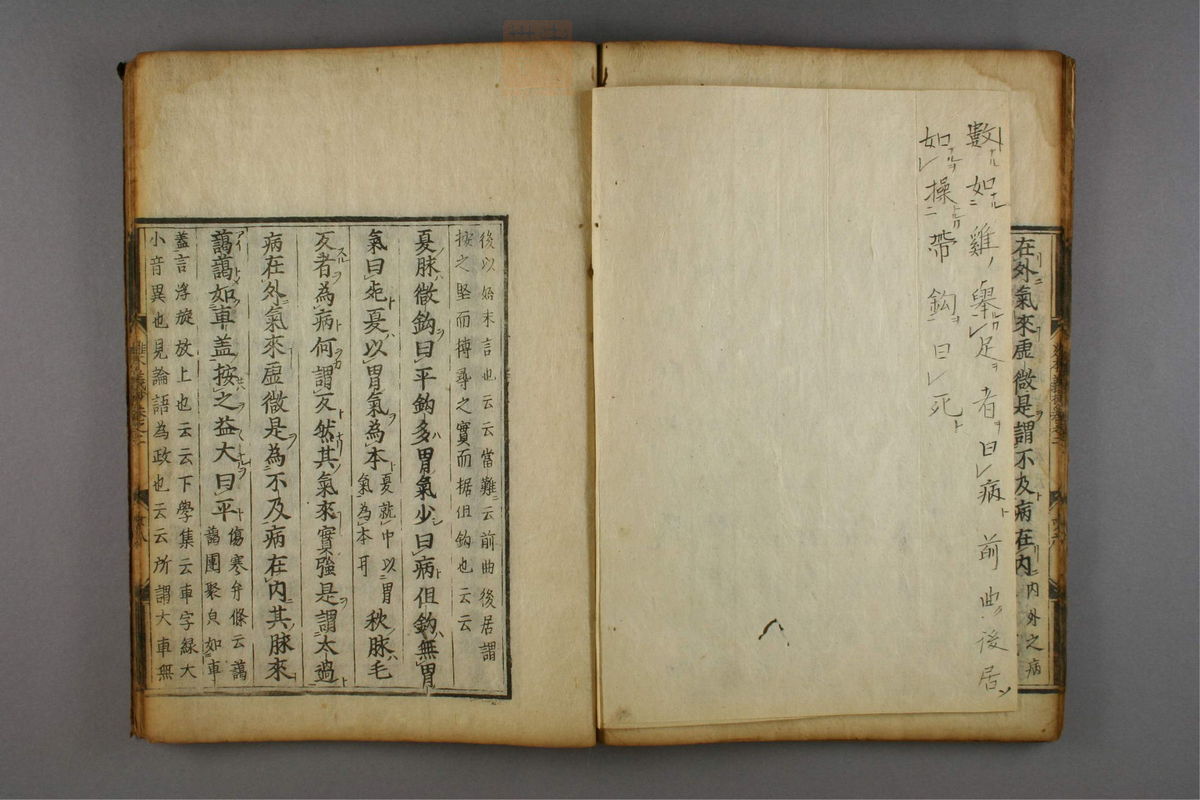 在外氣來虛微是謂不及病在内 内外之病
數如雞舉足者曰病前曲後居
如操帶鈎曰死
後以始末言也云云當難云前曲後居謂
按之堅而搏尋之實而据但鈎也云云
夏脉微鈎曰平鈎多胃氣少曰病但鈎無胃
氣曰死夏以胃氣為本 夏就中以胃氣為本耳 秋脉毛
反者為病何謂反然其氣來實強是謂太過
病在外氣來虛微是為不及病在内其脉來
藹藹如車盖按之益大曰平 傷寒弁條云藹藹團聚皃如車
盖言浮旋放上也云云下學集云車字緑大
小音異也見論語為政也云云所謂大車無